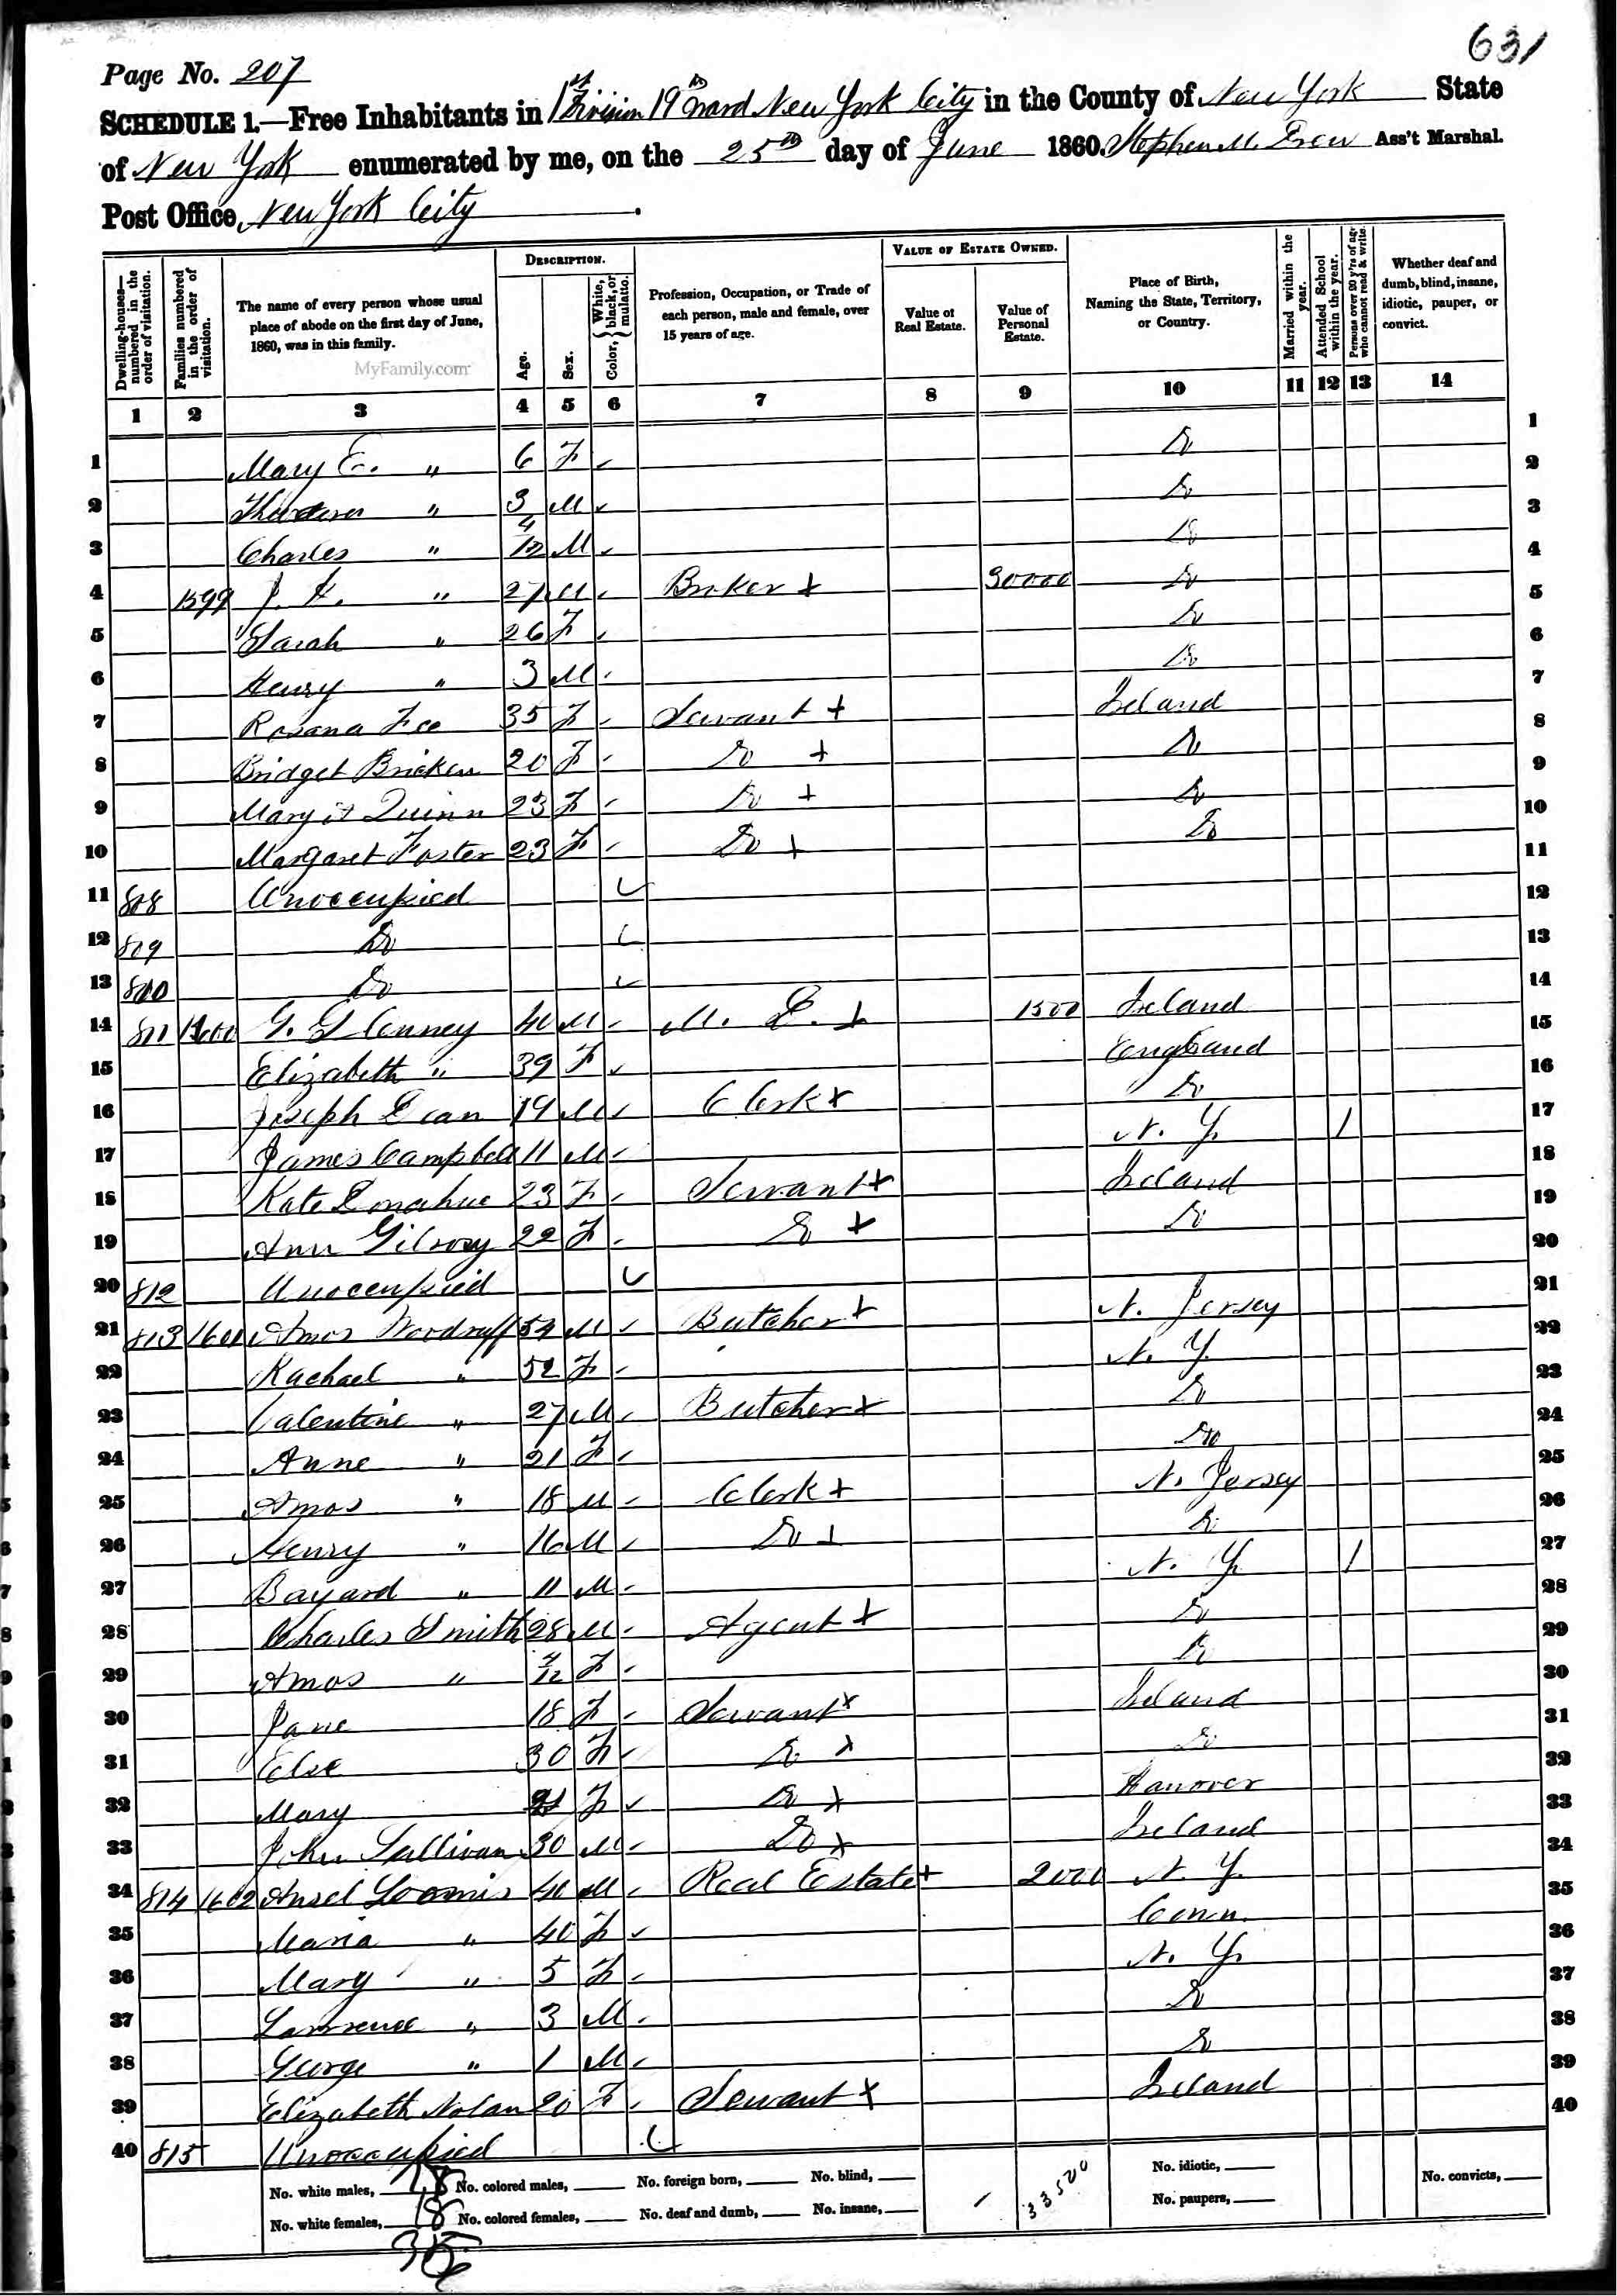 631
Page No. 207
SCHEDULE 1.—Free Inhabitants in 1st Division 19th Ward New York City in the County of New York State
of New York enumerated by me, on the 25th day of June 1860. Stephen M. Drew Ass't Marshal.
Post Office, New York City.
Dwelling-houses—numbered in the order of visitation. Families numbered in the order of visitation. The name of every person whose usual place of abode on the first day of June, 1860, was in this family. DESCRIPTION. Age. Sex. Color, { White, black, or mulatto. Profession, Occupation, or Trade of each person, male and female, over 15 years of age. VALUE OF ESTATE OWNED. Value of Real Estate. Value of Personal Estate. Place of Birth, Naming the State, Territory, or Country. Married within the year. Attended School within the year. Persons over 20 y'rs of age who cannot read & write. Whether deaf and dumb, blind, insane, idiotic, pauper, or convict.
MyFamily.com
1 2 3 4 5 6 7 8 9 10 11 12 13 14
1 Mary E. " 6 F Do 1
2 " 3 M Do 2
3 Charles " 4/12 M Do 3
4 1599 J. H. " 27 M Broker + 30000 Do 4
5 Sarah " 26 F Do 5
6 Henry " 3 M Do 6
7 Rosana Fee 35 F Servant + Ireland 7
8 Bridget Bricken 20 F Do + Do 8
9 Margit Quinn 23 F Do + Do 9
10 Margaret Foster 23 F Do + Do 10
11 808 Unoccupied 11
12 809 Do 12
13 810 Do 13
14 811 1600 G. Glenney 40 M M. D. + 1500 Ireland 14
15 Elizabeth " 39 F England 15
16 Joseph Dean 19 M Clerk + Do 16
17 James Campbell 11 M N. Y. 1 17
18 Kate Donahue 23 F Servant + Ireland 18
19 Ann Gilroy 22 F Do + Do 19
20 812 Unoccupied 20
21 813 1601 Amos Woodruff 54 M Butcher + N. Jersey 21
22 Rachael " 52 F N. Y. 22
23 Valentine " 27 M Butcher + Do 23
24 Anne " 21 F Do 24
25 Amos " 18 M Clerk + N. Jersey 25
26 Henry " 16 M Do + Do 26
27 Bayard " 11 M N. Y. 1 27
28 Charles Smith 28 M Agent + Do 28
29 Amos " 4/12 F Do 29
30 Jane 18 F Servant + Ireland 30
31 Else 30 F Do + Do 31
32 Mary 21 F Do + Hanover 32
33 John Sullivan 30 M Do + Ireland 33
34 814 1602 Ansel Loomis 40 M Real Estate + 2000 N. Y. 34
35 Maria " 40 F Conn. 35
36 Mary " 5 F N. Y. 36
37 Lawrence " 3 M Do 37
38 George " 1 M Do 38
39 Elizabeth Nolan 20 F Servant + Ireland 39
40 815 Unoccupied 40
No. white males, 18 No. colored males, No. foreign born, No. blind, 33500 No. idiotic, No. convicts,
No. white females, 18 No. colored females, No. deaf and dumb, No. insane, No. paupers,